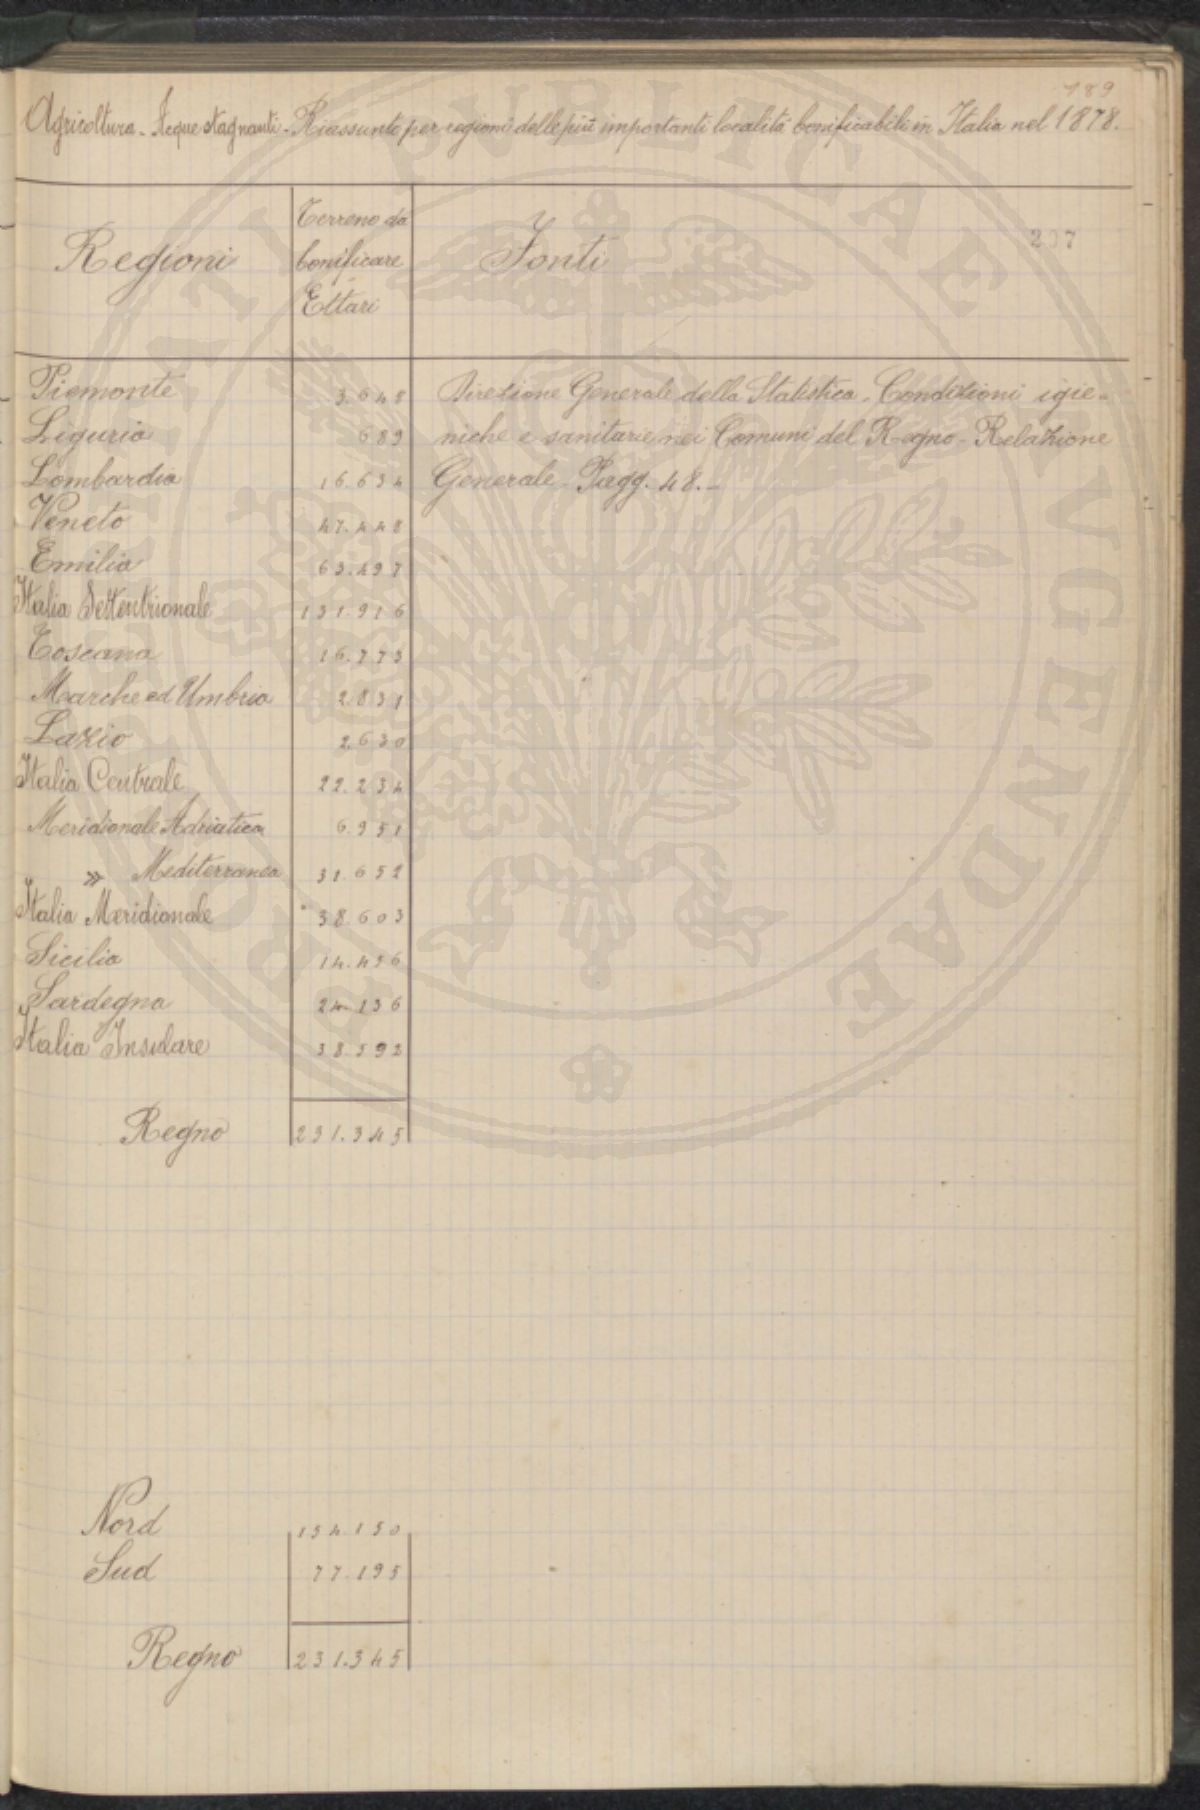 189
Agricoltura - Acque stagnanti - Riassunto per regioni delle più importanti località bonificabili in Italia nel 1878.
Regioni	Terreno da bonificare Ettari	Fonti
207
Piemonte 3.648 Direzione Generale della Statistica - Condizioni igie-
Liguria 689 niche e sanitarie nei Comuni del Regno - Relazione
Lombardia 16.634 Generale - Pagg. 48.-
Veneto 47.448
Emilia 63.497
Italia Settentrionale 131.916
Toscana 16.773
Marche ed Umbria 2.831
Lazio 2.630
Italia Centrale 22.234
Meridionale Adriatica 6.951
» Mediterranea 31.652
Italia Meridionale 38.603
Sicilia 14.456
Sardegna 24.136
Italia Insulare 38.592
Regno 231.345
Nord 154.150
Sud 77.195
Regno 231.345
PUBLICAE AVGENDAE